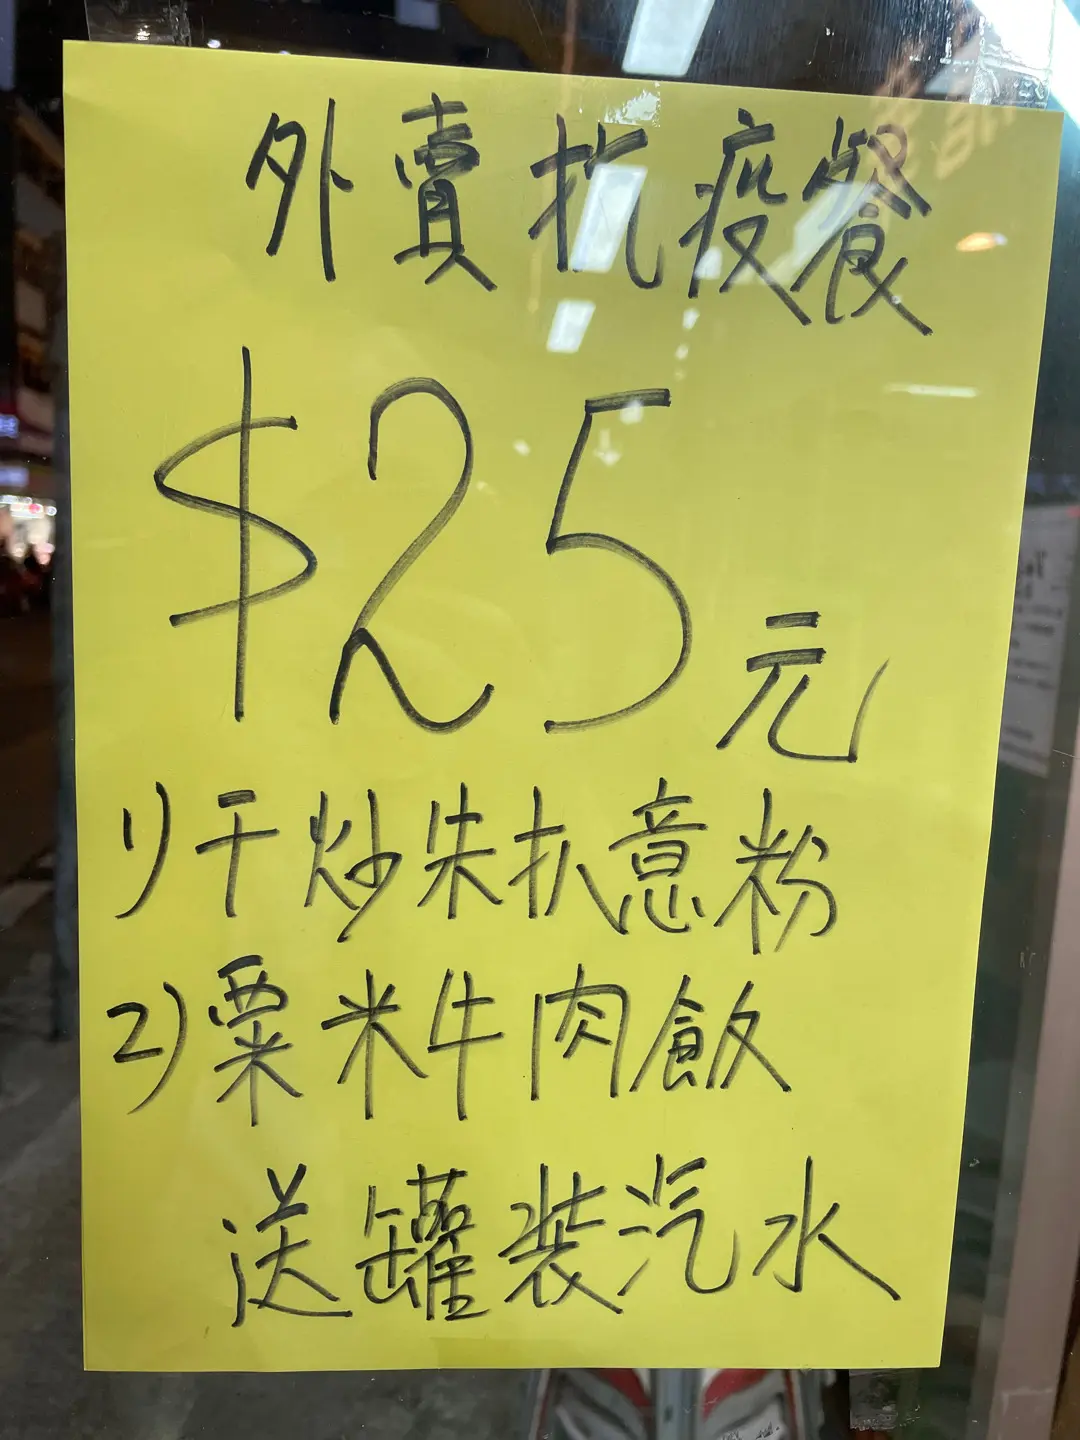 外賣抗疫餐
$25元
1)干炒朱扒意粉
2)粟米牛肉飯
送罐装汽水